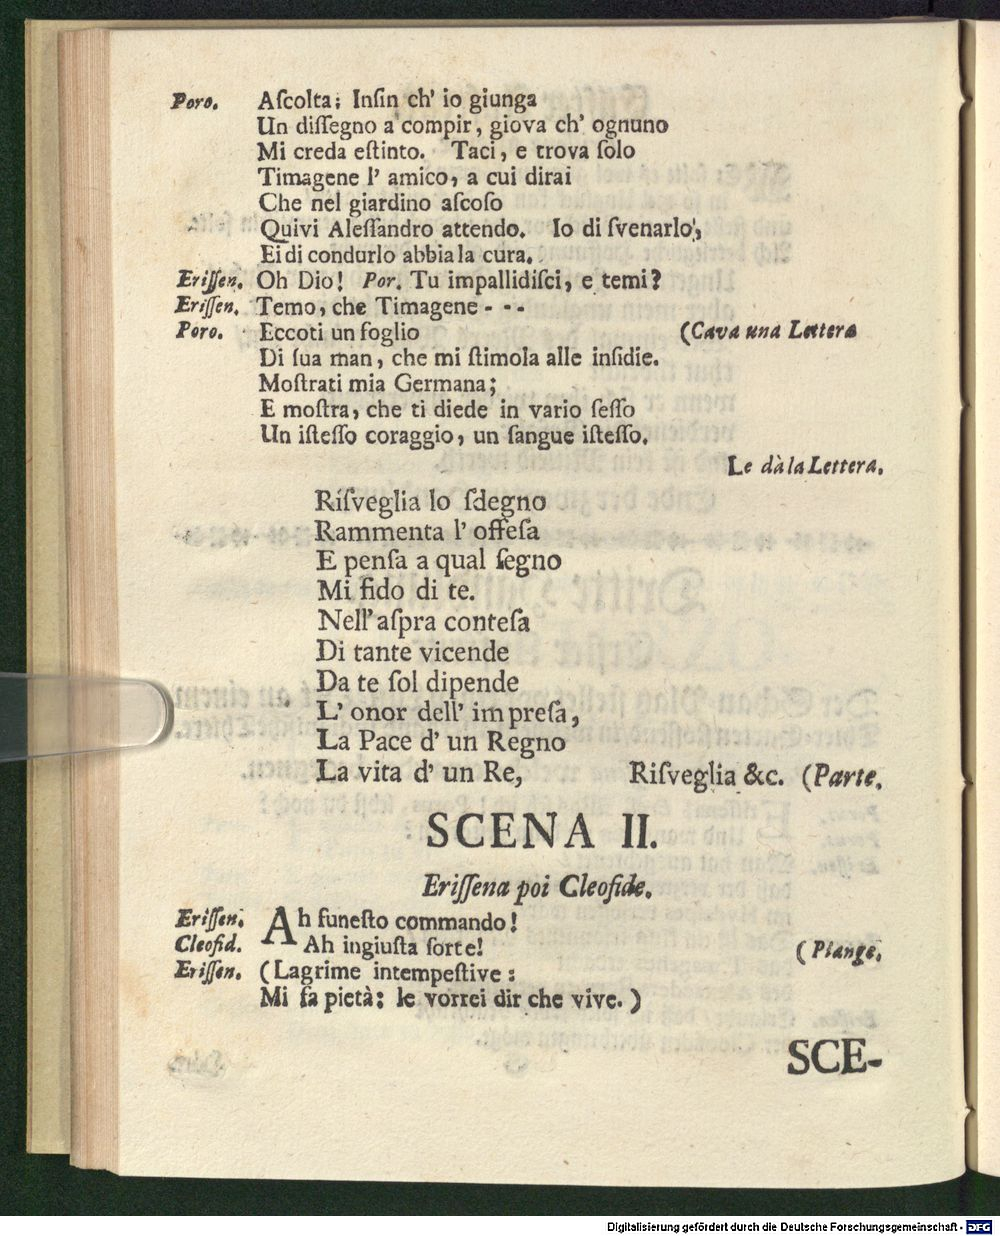 Poro. Aſcolta; Inſin ch' io giunga
Un diſſegno a compir, giova ch' ognuno
Mi creda eſtinto. Taci, e trova ſolo
Timagene l' amico, a cui dirai
Che nel giardino aſcoſo
Quivi Aleſſandro attendo. Io di ſvenarlo,
Ei di condurlo abbia la cura.
Eriſſen. Oh Dio! Por. Tu impallidiſci, e temi?
Eriſſen. Temo, che Timagene - - -
Poro. Eccoti un foglio (Cava una Lettera
Di ſua man, che mi ſtimola alle inſidie.
Moſtrati mia Germana;
E moſtra, che ti diede in vario ſeſſo
Un iſteſſo coraggio, un ſangue iſteſſo.
Le dà la Lettera.
Riſveglia lo ſdegno
Rammenta l' offeſa
E penſa a qual ſegno
Mi fido di te.
Nell' aſpra conteſa
Di tante vicende
Da te ſol dipende
L' onor dell' impreſa,
La Pace d' un Regno
La vita d' un Re, Riſveglia &c. (Parte.
SCENA II.
Eriſſena poi Cleofide.
Eriſſen. Ah funeſto commando!
Cleofid. Ah ingiuſta ſorte! (Piange.
Eriſſen. (Lagrime intempeſtive:
Mi fa pietà: le vorrei dir che vive.)
SCE-
Digitalisierung gefördert durch die Deutsche Forschungsgemeinschaft - DFG